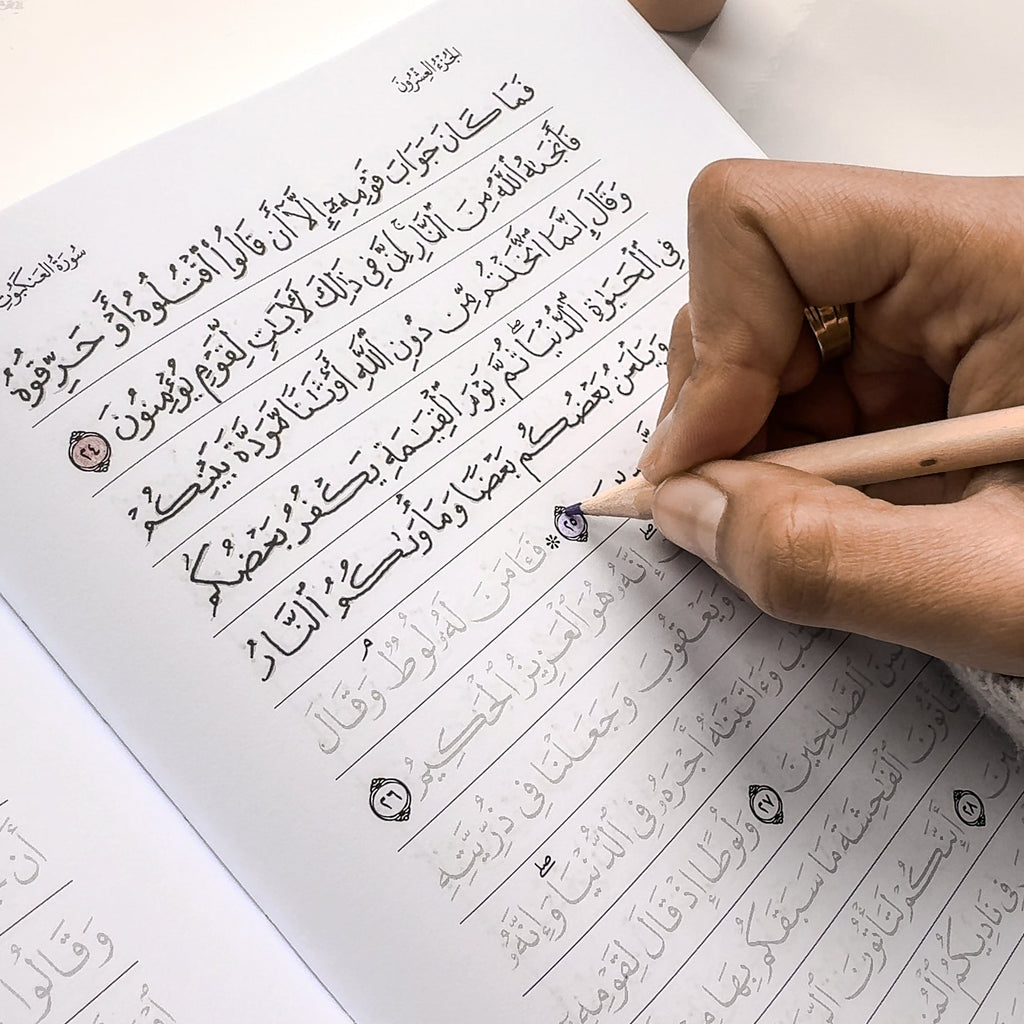 الجُزْءُ العِشْرُونَ
سُورَةُ العَنكَبُوتِ
فَمَا كَانَ جَوَابَ قَوْمِهِۦٓ إِلَّآ أَن قَالُوا۟ ٱقْتُلُوهُ أَوْ حَرِّقُوهُ
فَأَنجَىٰهُ ٱللَّهُ مِنَ ٱلنَّارِ ۚ إِنَّ فِى ذَٰلِكَ لَـَٔايَـٰتٍ لِّقَوْمٍ يُؤْمِنُونَ ٢٤
وَقَالَ إِنَّمَا ٱتَّخَذْتُم مِّن دُونِ ٱللَّهِ أَوْثَـٰنًا مَّوَدَّةَ بَيْنِكُمْ
فِى ٱلْحَيَوٰةِ ٱلدُّنْيَا ۖ ثُمَّ يَوْمَ ٱلْقِيَـٰمَةِ يَكْفُرُ بَعْضُكُم
وَيَلْعَنُ بَعْضُكُم بَعْضًا وَمَأْوَىٰكُمُ ٱلنَّارُ
٢٥ ۞ فَـَٔامَنَ لَهُۥ لُوطٌ ۘ وَقَالَ
إِنَّهُۥ هُوَ ٱلْعَزِيزُ ٱلْحَكِيمُ ٢٦
وَيَعْقُوبَ وَجَعَلْنَا فِى ذُرِّيَّتِهِ
وَءَاتَيْنَـٰهُ أَجْرَهُۥ فِى ٱلدُّنْيَا ۖ وَإِنَّهُۥ
ٱلصَّـٰلِحِينَ ٢٧ وَلُوطًا إِذْ قَالَ لِقَوْمِهِۦٓ
ٱلْفَـٰحِشَةَ مَا سَبَقَكُم بِهَا
٢٨ أَئِنَّكُمْ لَتَأْتُونَ
فِى نَادِيكُمُ
أَن
وَقَالُوا۟